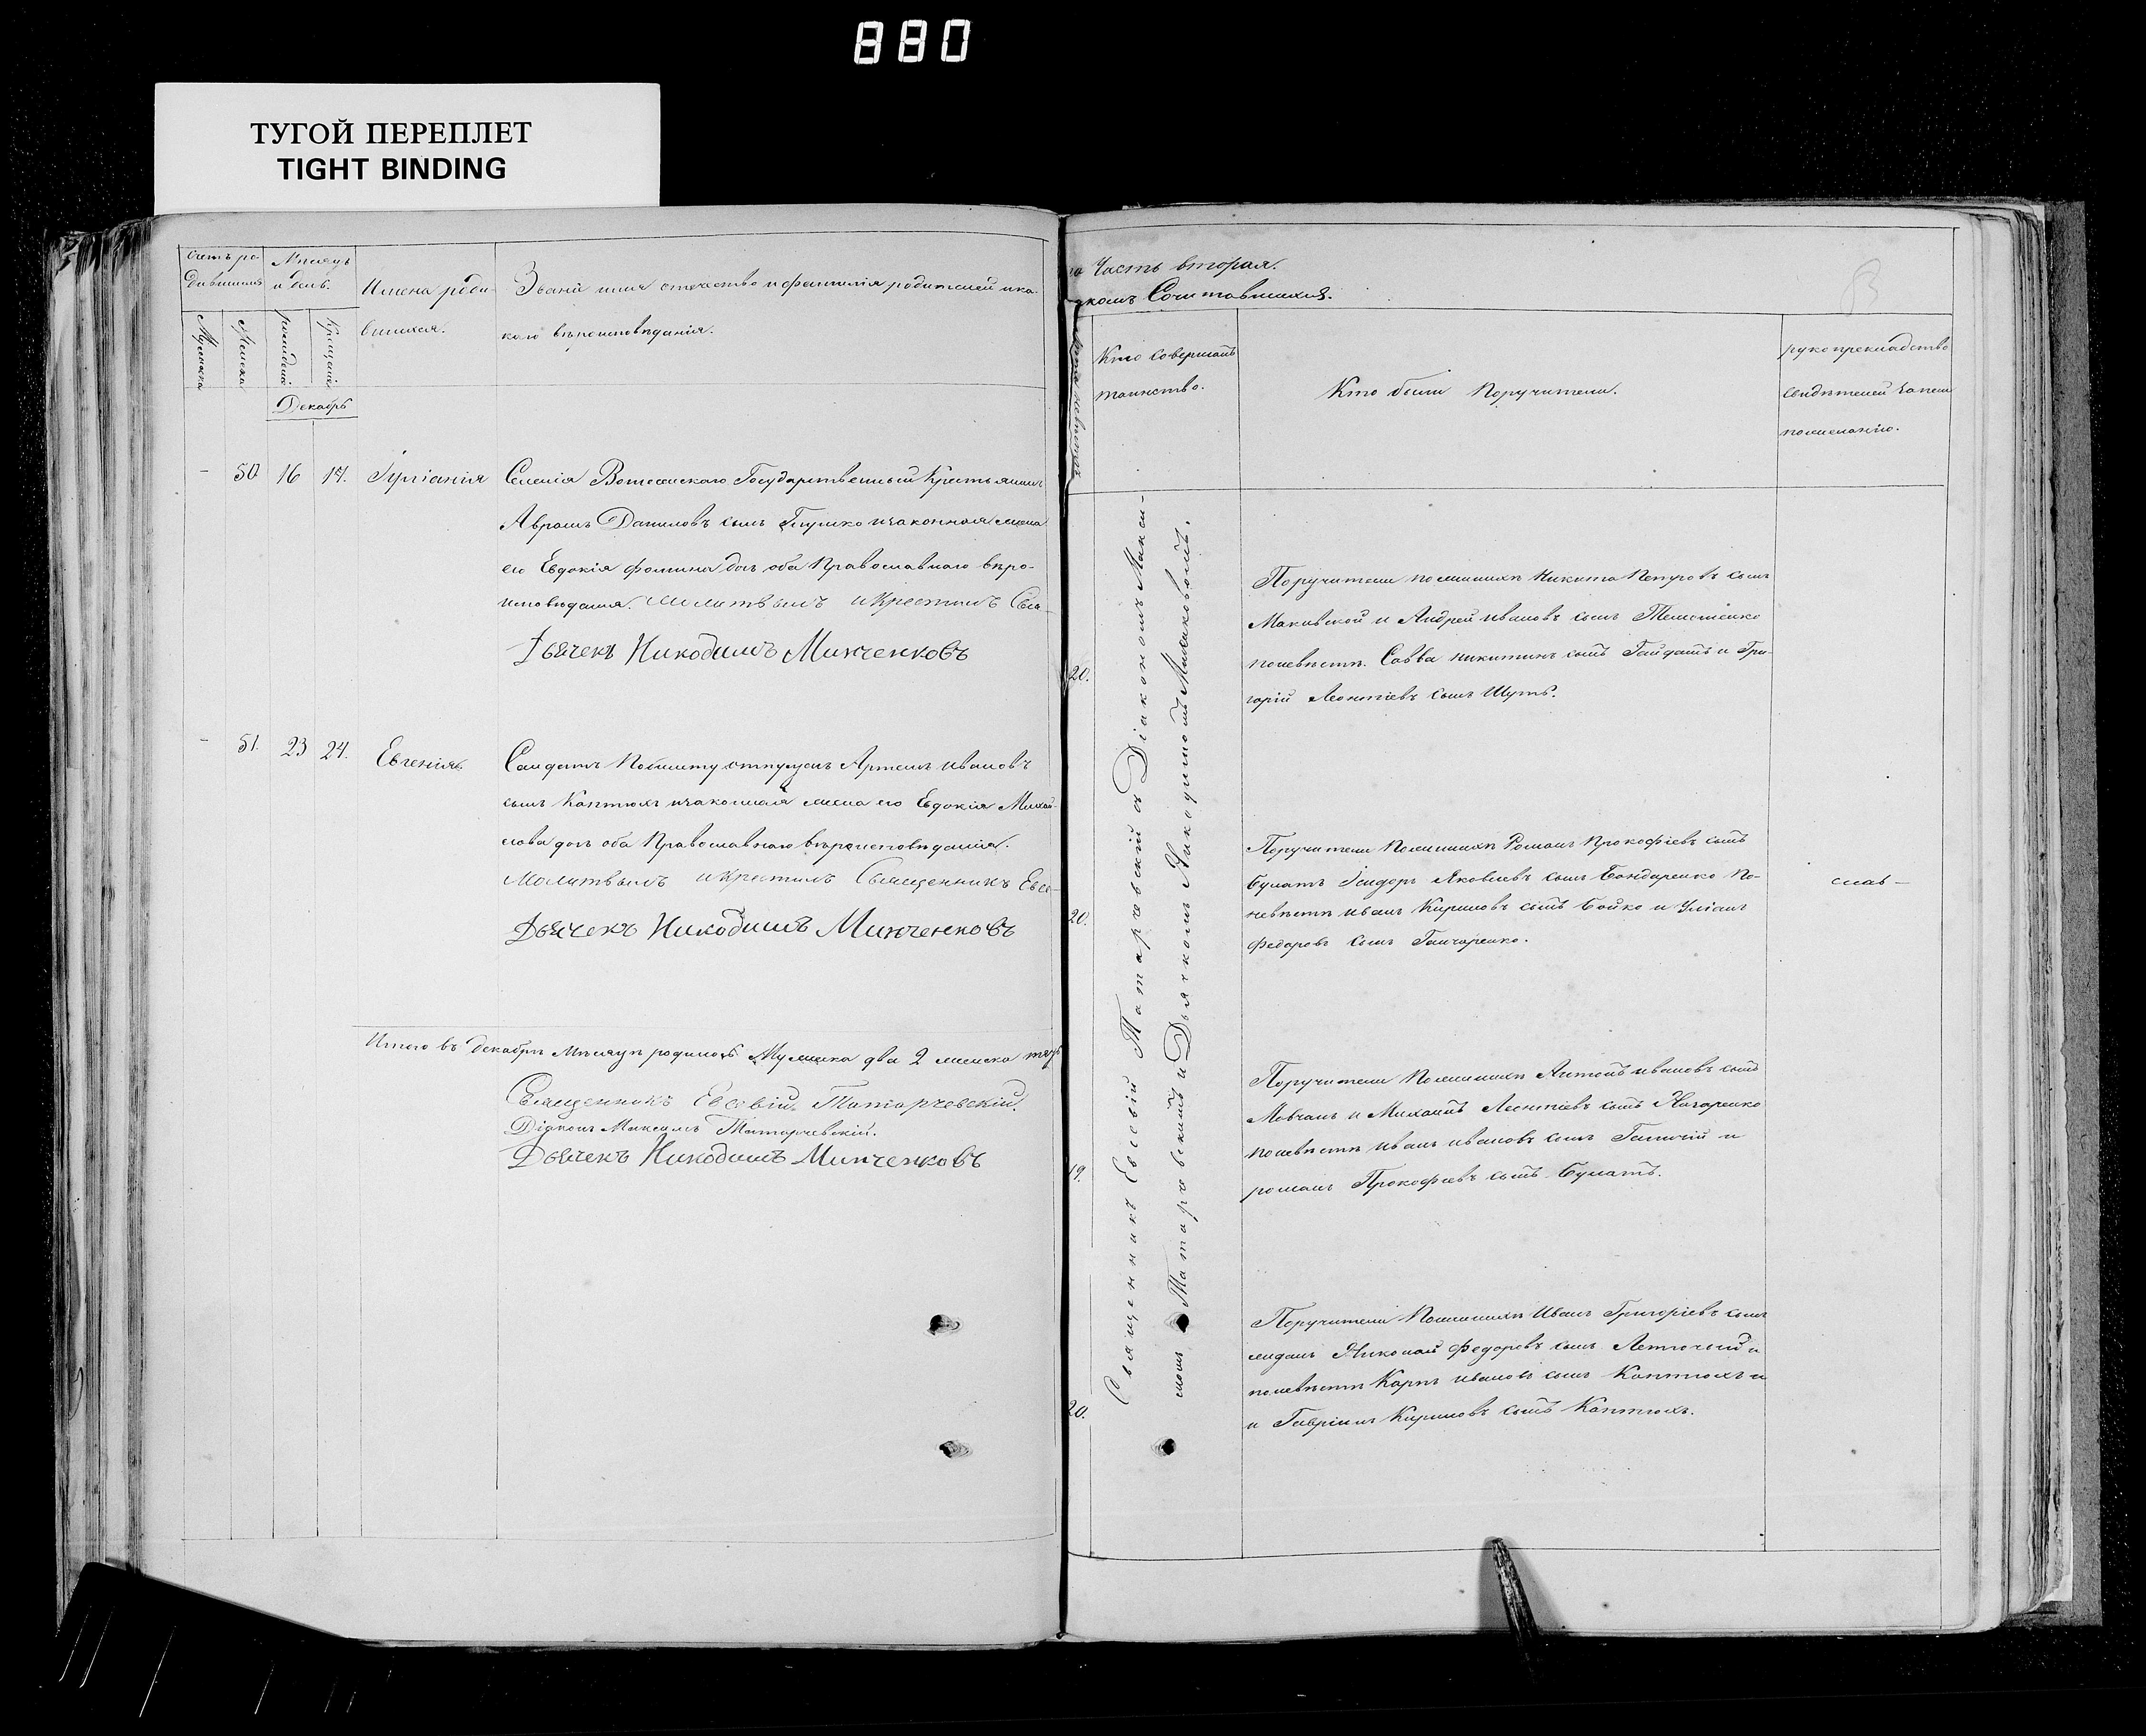 880
ТУГОЙ ПЕРЕПЛЕТ
TIGHT BINDING
Счетъ ро-
дившихся
Мѣсяцъ
и день.
Имена роди-
вшихся.
Званіе имя отечество и фамилія родителей и ка-
кого вѣроисповѣданія.
Мужеска
Женска
рожденія
Крещенія
Декабрь
- 50 16 17. Іуліанія
Селенія Государственный Крестьянинъ
Авраамъ Даниловъ сынъ и законная жена
его Евдокія Фомина доч. оба Православнаго вѣро-
исповѣданія. Молитвилъ и Крестилъ Свя-
Дьячекъ Никодимъ Минченковъ
- 51. 23 24. Евгенія
Солдатъ Артемъ Ивановъ
сынъ Каптюхъ и законная жена его Евдокія Михай-
лова доч. оба Православнаго вѣроисповѣданія.
Молитвилъ и Крестилъ Священникъ Евсе-
Дьячекъ Никодимъ Минченковъ
Итого въ декабрѣ Мѣсяцѣ родилось Мужеска два 2 женска
Священникъ Евсевій Татарчевскій.
Діаконъ Максимъ Татарчевскій.
Дьячекъ Никодимъ Минченковъ
Часть вторая.
Сочитавшихся.
Кто совершалъ
таинство.
Кто были Поручители.
рукоприкладство
свидѣтелей
по желанію.
Священникъ Евсевій Татарчевскій съ Діакономъ Макси-
момъ Татарчевскимъ и Дьячкомъ Никодимомъ
20.
Поручители по женихѣ Никита Петровъ сынъ
Маковской и Андрей Ивановъ сынъ
по невѣстѣ. Савва Никитинъ сынъ Гайдашъ и Гри-
горій Леонтіевъ сынъ Шутъ.
20.
Поручители По женихѣ Романъ Прокофіевъ сынъ
Булатъ Ісидоръ Яковлевъ сынъ Бондаренко По
невѣстѣ Иванъ Кириловъ сынъ Бойко и Уліанъ
Федоровъ сынъ Ганчаренко.
19.
Поручители По женихѣ Антонъ Ивановъ сынъ
Мовчанъ и Михаилъ Леонтіевъ сынъ Назаренко
по невѣстѣ Иванъ Ивановъ сынъ и
романъ Прокофіевъ сынъ Булатъ.
20.
Поручители По женихѣ Иванъ Григоріевъ сынъ
Николай Федоровъ сынъ и
по невѣстѣ Карпъ Ивановъ сынъ Каптюхъ и
и Гавріилъ Кириловъ сынъ Каптюхъ.